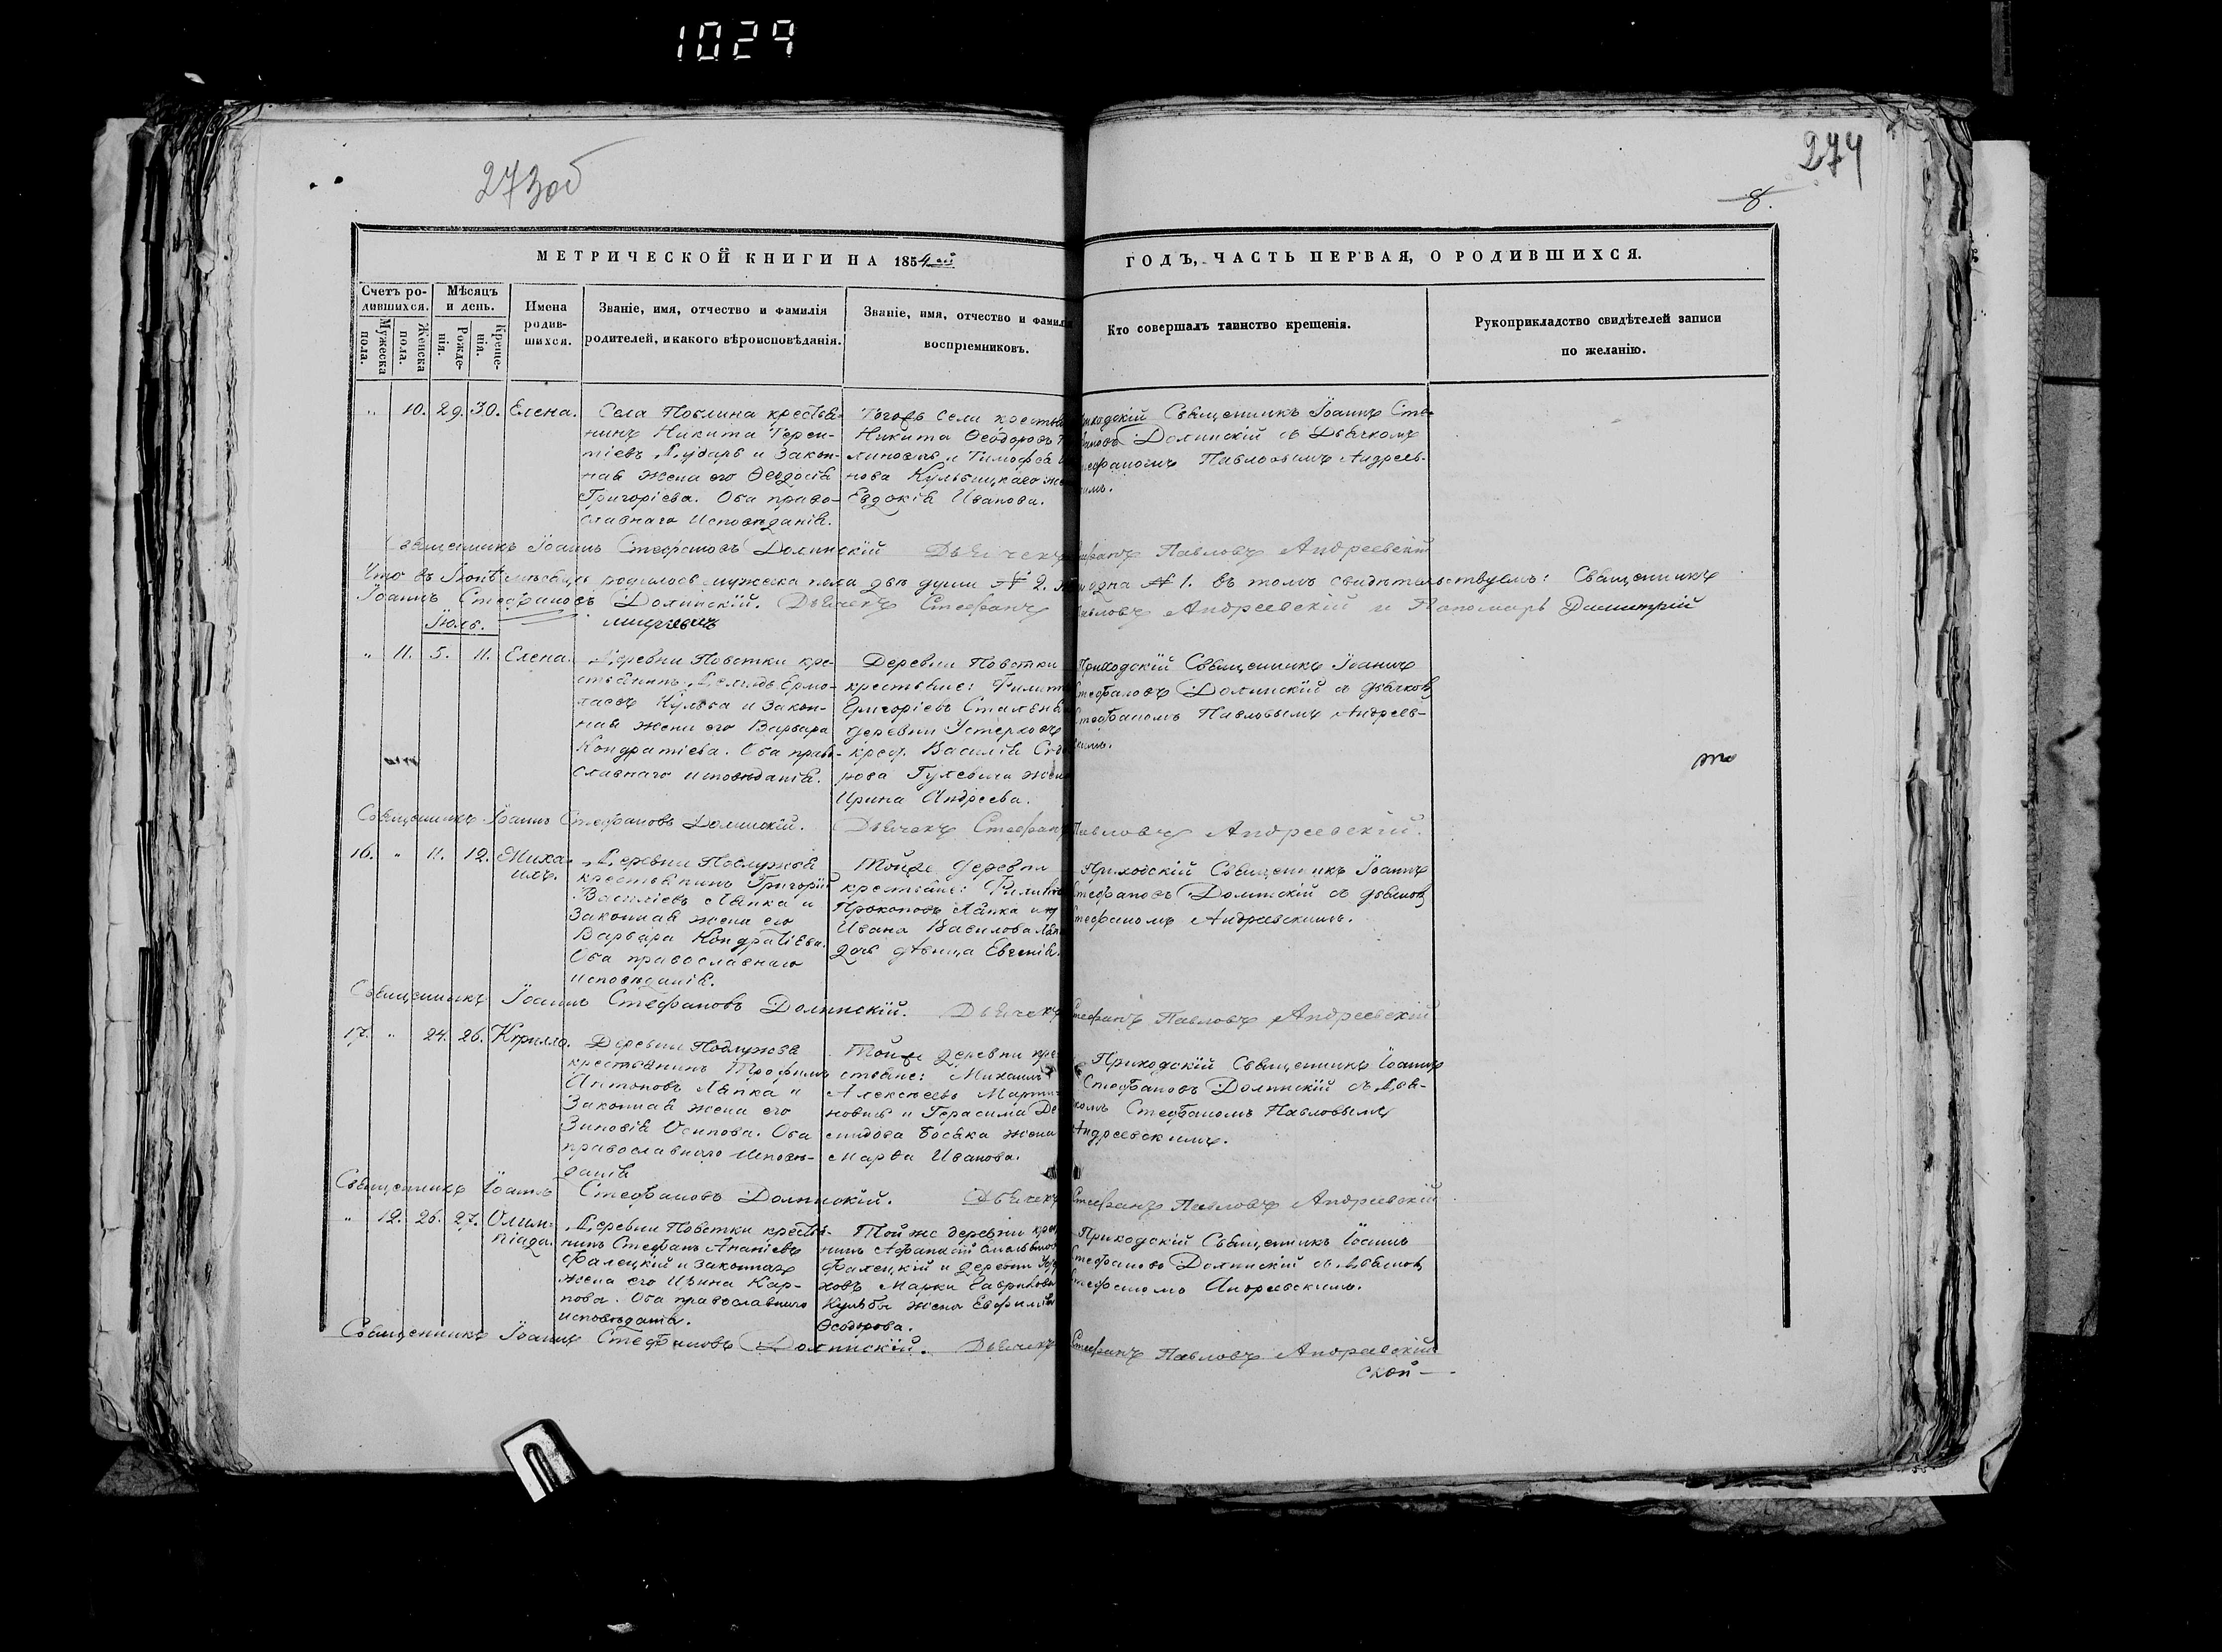 1029
273об
274
8.
МЕТРИЧЕСКОЙ КНИГИ НА 1854й ГОДЪ, ЧАСТЬ ПЕРВАЯ, О РОДИВШИХСЯ.
Счетъ родившихся.
Мужеска пола.
Женска пола.
Мѣсяцъ и день.
Рожденія.
Крещенія.
Имена родившихся.
Званіе, имя, отчество и фамилія
родителей, и какого вѣроисповѣданія.
Званіе, имя, отчество и фамилія
воспріемниковъ.
Кто совершалъ таинство крещенія.
Рукоприкладство свидѣтелей записи
по желанію.
„ 10. 29. 30. Елена.
Села крестья-
нинъ Никита Терен-
тіевъ и закон-
ная жена его Ѳеодосія
Григоріева. Оба право-
славнаго исповѣданія.
Тогожъ села
Никита Ѳеодоровъ
и Тимофея
Кульвицкаго
Евдокія Иванова.
Священникъ Іоаннъ Сте-
Долинскій съ Дьячкомъ
Павловымъ Андреев-
Священникъ Іоаннъ Стефановъ Долинскій Дьячекъ Павловъ Андреевскій
Что въ Іюнѣ мѣсяцѣ родилось мужеска пола двѣ души № 2. одна № 1. въ томъ свидѣтельствуемъ: Священникъ
Іоаннъ Стефановъ Долинскій. Дьячекъ Стефанъ Павловъ Андреевскій и Пономарь Димитрій
Іюль.
„ 11. 5. 11. Елена.
Деревни Повстки кре-
стьянинъ Ермо-
лаевъ Кульба и закон-
ная жена его Варвара
Кондратіева. Оба право-
славнаго исповѣданія.
Деревни Повстки
крестьяне:
Григоріевъ
деревни
крест. Василія
жена
Ирина Андреева.
Приходскій Священникъ Іоаннъ
Стефановъ Долинскій съ дьячкомъ
Стефаномъ Павловымъ Андреев-
скимъ.
Священникъ Іоаннъ Стефановъ Долинскій. Дьячекъ Стефанъ Павловъ Андреевскій.
16. „ 11. 12. Миха-
илъ.
Деревни Подлужья
крестьянинъ Григорій
Василіевъ Ляпка и
законная жена его
Варвара Кондратіева.
Оба православнаго
исповѣданія.
Тойже деревни
крестьяне:
Прокоповъ Ляпка и
Ивана Вавилова
дочь дѣвица Евгенія.
Приходскій Священникъ Іоаннъ
Стефановъ Долинскій съ дьячкомъ
Стефаномъ Андреевскимъ.
Священникъ Іоаннъ Стефановъ Долинскій. Дьячекъ Стефанъ Павловъ Андреевскій
17. „ 24. 26. Кирилло.
Деревни Подлужья
крестьянинъ Трофимъ
Антоновъ Ляпка и
законная жена его
Зиновія Осипова. Оба
православнаго исповѣ-
данія
Тойже деревни кре-
стьяне: Михаилъ
Алексѣевъ Марти-
новичъ и Герасима Де-
мидова Босака жена
Марѳа Иванова.
Приходскій Священникъ Іоаннъ
Стефановъ Долинскій съ Дья-
комъ Стефаномъ Павловымъ
Андреевскимъ.
Священникъ Іоаннъ Стефановъ Долинскій. Дьячекъ Стефанъ Павловъ Андреевскій
„ 12. 26. 27. Олим-
піада.
Деревни Повстки крестья-
нинъ Стефанъ Ананіевъ
Фалецкій и законная
жена его Ирина Кар-
пова. Оба православнаго
исповѣданія.
Той же деревни
нинъ Афанасій
Фалецкій и деревни
Марка Гаврилова
Кульбы жена Евфимія
Ѳеодорова.
Приходскій Священникъ Іоаннъ
Стефановъ Долинскій съ дьячкомъ
Стефаномъ Андреевскимъ.
Священникъ Іоаннъ Стефановъ Долинскій. Дьячекъ Стефанъ Павловъ Андреевскій
ской